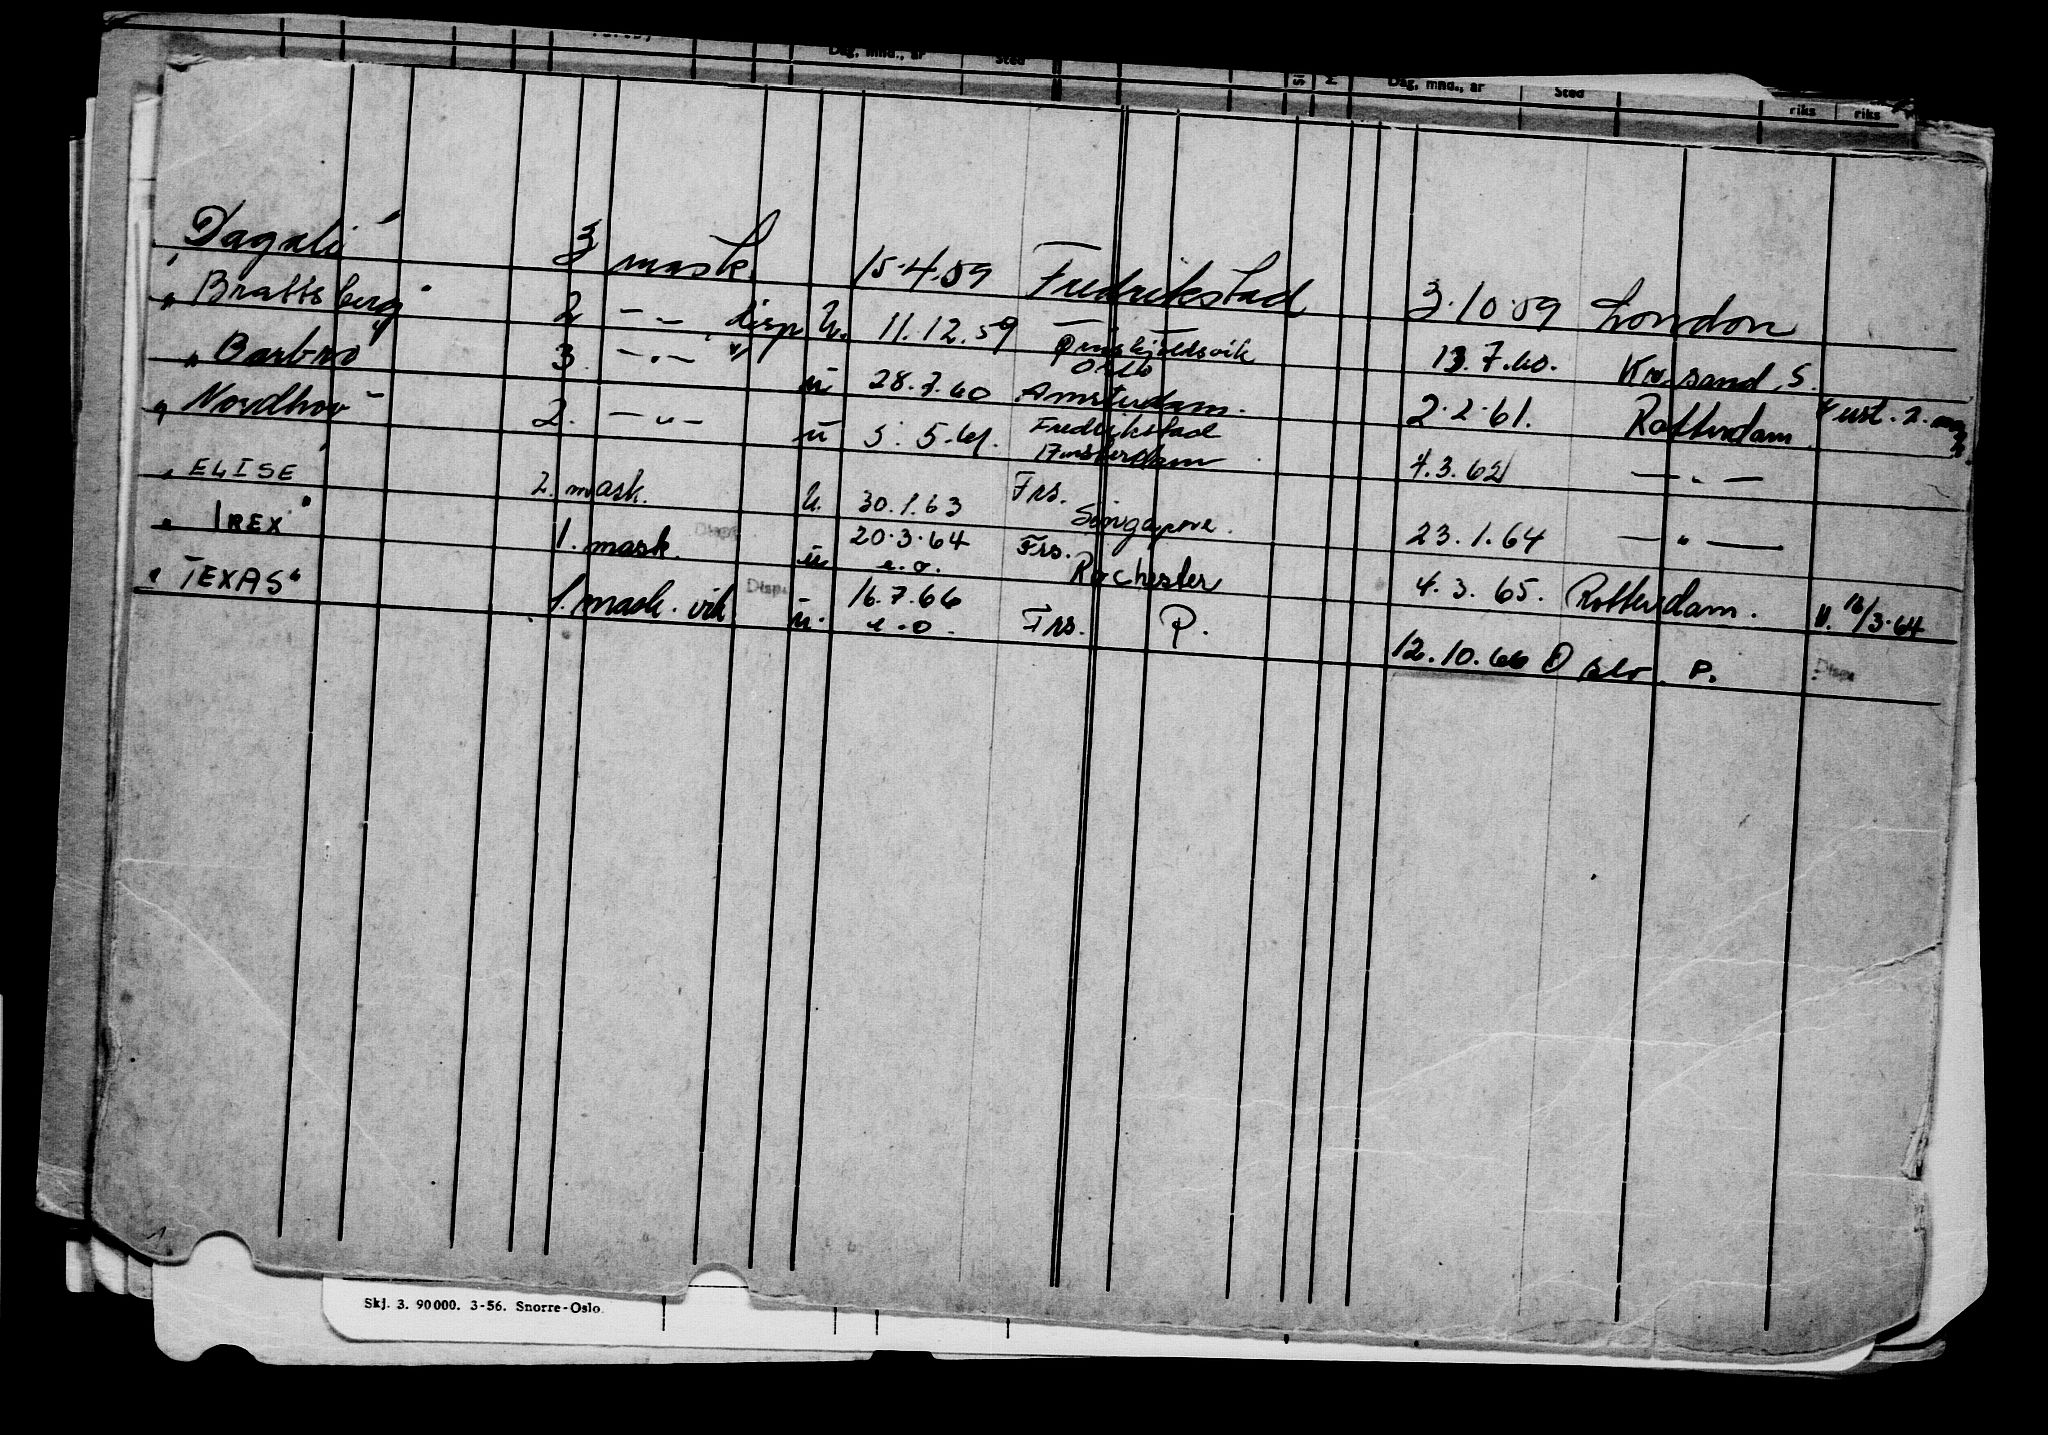 Dag, mnd., år Sted Dag, mnd., år Sted riks riks
"Dagali" 3 mask. 15.4.59 Fredrikstad 3.10.59 London
"Brattsberg" 2 — " — disp u. 11.12.59 Ørnskjoldsvik 13.7.60. Kr.sand. S.
Oslo
"Barbro" 3. — " — " u 28.7.60 Amsterdam. 2.2.61. Rotterdam
"Nordhov" 2. — " — u 5. 5.61. Fredrikstad 4.3.62 — " —
Amsterdam
"ELISE" 2. mask. u. 30.1.63 Frs. Singapore. 23.1.64 — " —
"IREX" 1. mask. Disp. u 20.3.64 Frs. Rochester 4.3.65. Rotterdam. u. 16/3.64
e.o.
"TEXAS" 1. mask. vik Disp. u. 16.7.66 Frs. P. 12.10.66 Oslo. P. Disp.
e.o.
Skj. 3. 90000. 3-56. Snorre-Oslo.